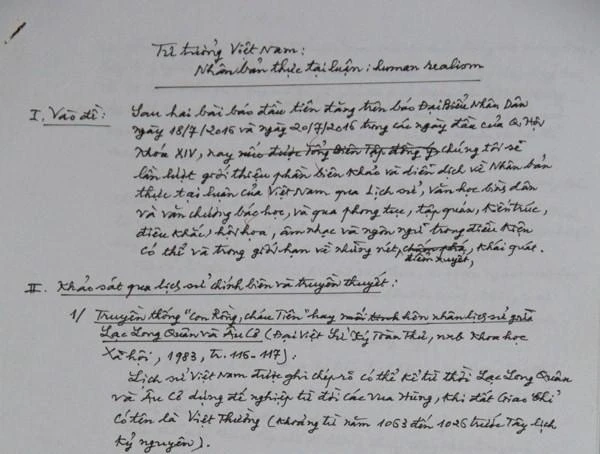 Triết tưởng Việt Nam:
Nhân bản thực tại luận: human realism
I. Vào đề: Sau hai bài báo đầu tiên đăng trên báo Đại Biểu Nhân Dân
ngày 18/7/2016 và ngày 20/7/2016 trong các ngày đầu của Q. Hội
khóa XIV, nay nếu được Tổng Biên Tập đồng ý chúng tôi sẽ
lần lượt giới thiệu phần biên khảo và diễn dịch về Nhân bản
thực tại luận của Việt Nam qua Lịch sử, văn học bình dân
và văn chương bác học, và qua phong tục, tập quán, kiến trúc,
điêu khắc, hội họa, âm nhạc và ngôn ngữ trong điều kiện
có thể và trong giới hạn về những nét chấm phá, khái quát.
điểm xuyết,
II. Khảo sát qua lịch sử chính biên và truyền thuyết:
1/ Truyền thống "Con Rồng, cháu Tiên" hay mối tình hôn nhân lịch sử giữa
Lạc Long Quân và Âu Cơ (Đại Việt Sử Ký Toàn Thư, nxb Khoa học
Xã hội, 1983, tr. 116-117):
Lịch sử Việt Nam được ghi chép rõ có thể kể từ thời Lạc Long Quân
và Âu Cơ dựng đế nghiệp từ đời các Vua Hùng, khi đất Giao Chỉ
có tên là Việt Thường (khoảng từ năm 1063 đến 1026 trước Tây lịch
kỷ nguyên).